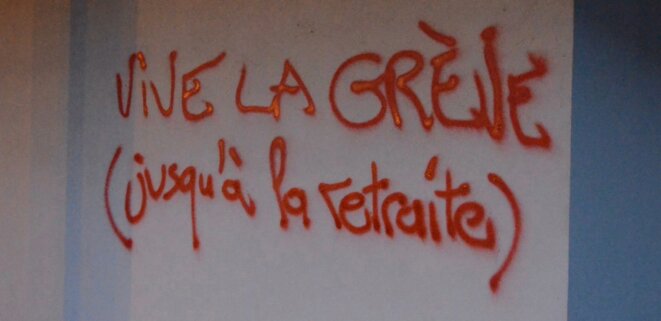 ViVE LA GRÈVE
(jusqu'à la retraite)